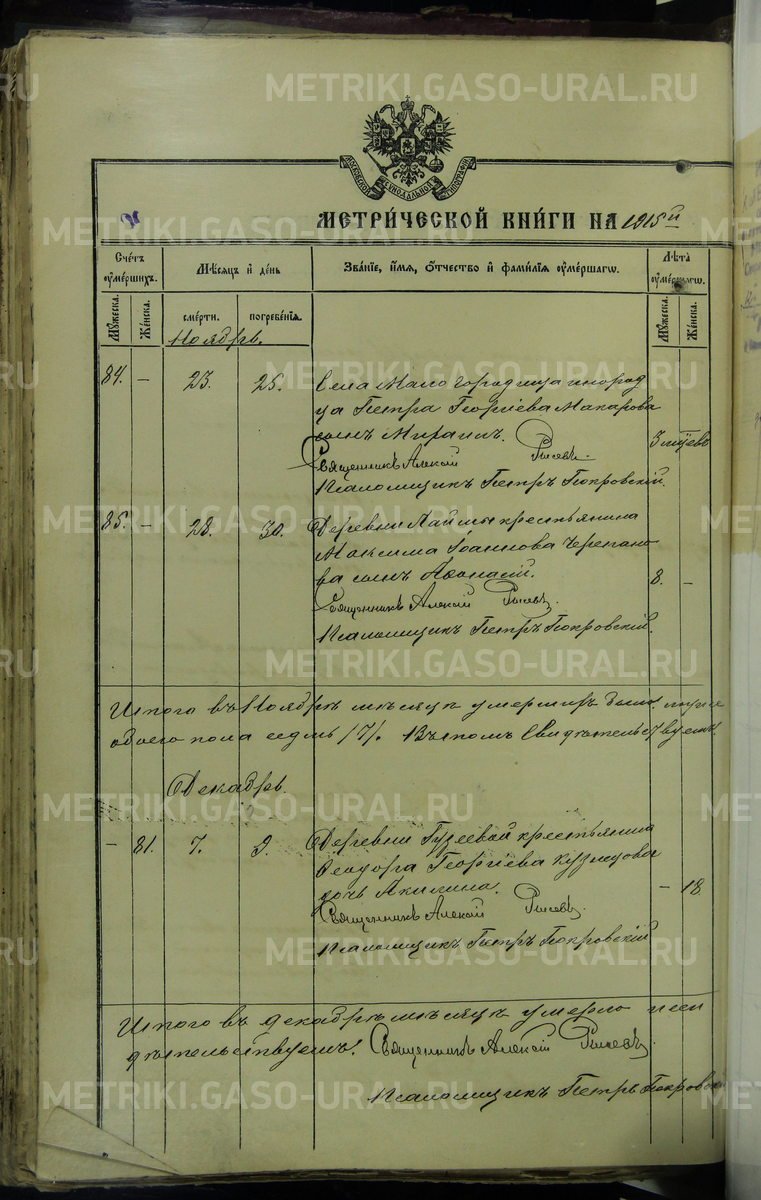 METRIKI.GASO-URAL.RU
МОСКОВСКОЙ СѴНОДАЛЬНОЙ ТИПОГРАФІИ
МЕТРИЧЕСКОЙ КНИГИ НА 1915й
Счетъ умершихъ.
Мѣсяцъ и день
Званіе, имя, отчество и фамилія умершаго.
Лѣта умершаго.
Мужеска.
Женска.
смерти.
погребенія.
Мужеска.
Женска.
Ноябрь.
84. – 23. 25. Села Мало город
ца Петра Георгіева Макарова
сынъ
Священникъ Алексій
Псаломщикъ Петръ Покровскій.
85. – 28. 30. Деревни крестьянина
Максима Іоаннова Черепано
ва сынъ Аѳонасій. 8. –
Священникъ Алексій
Псаломщикъ Петръ Покровскій.
Итого въ Ноябрѣ мѣсяцѣ умершихъ было
обоего пола седмь /7/. Въ томъ свидѣтельствуемъ.
Декабрь.
– 81. 7. 9. Деревни Гузеевой крестьянина
Ѳеодора Георгіева Кузнецова
дочь Акилина. – 18
Священникъ Алексій
Псаломщикъ Петръ Покровскій
Итого въ декабрѣ мѣсяцѣ умерло
дѣтельствуемъ: Священникъ Алексій
Псаломщикъ Петръ Покровс